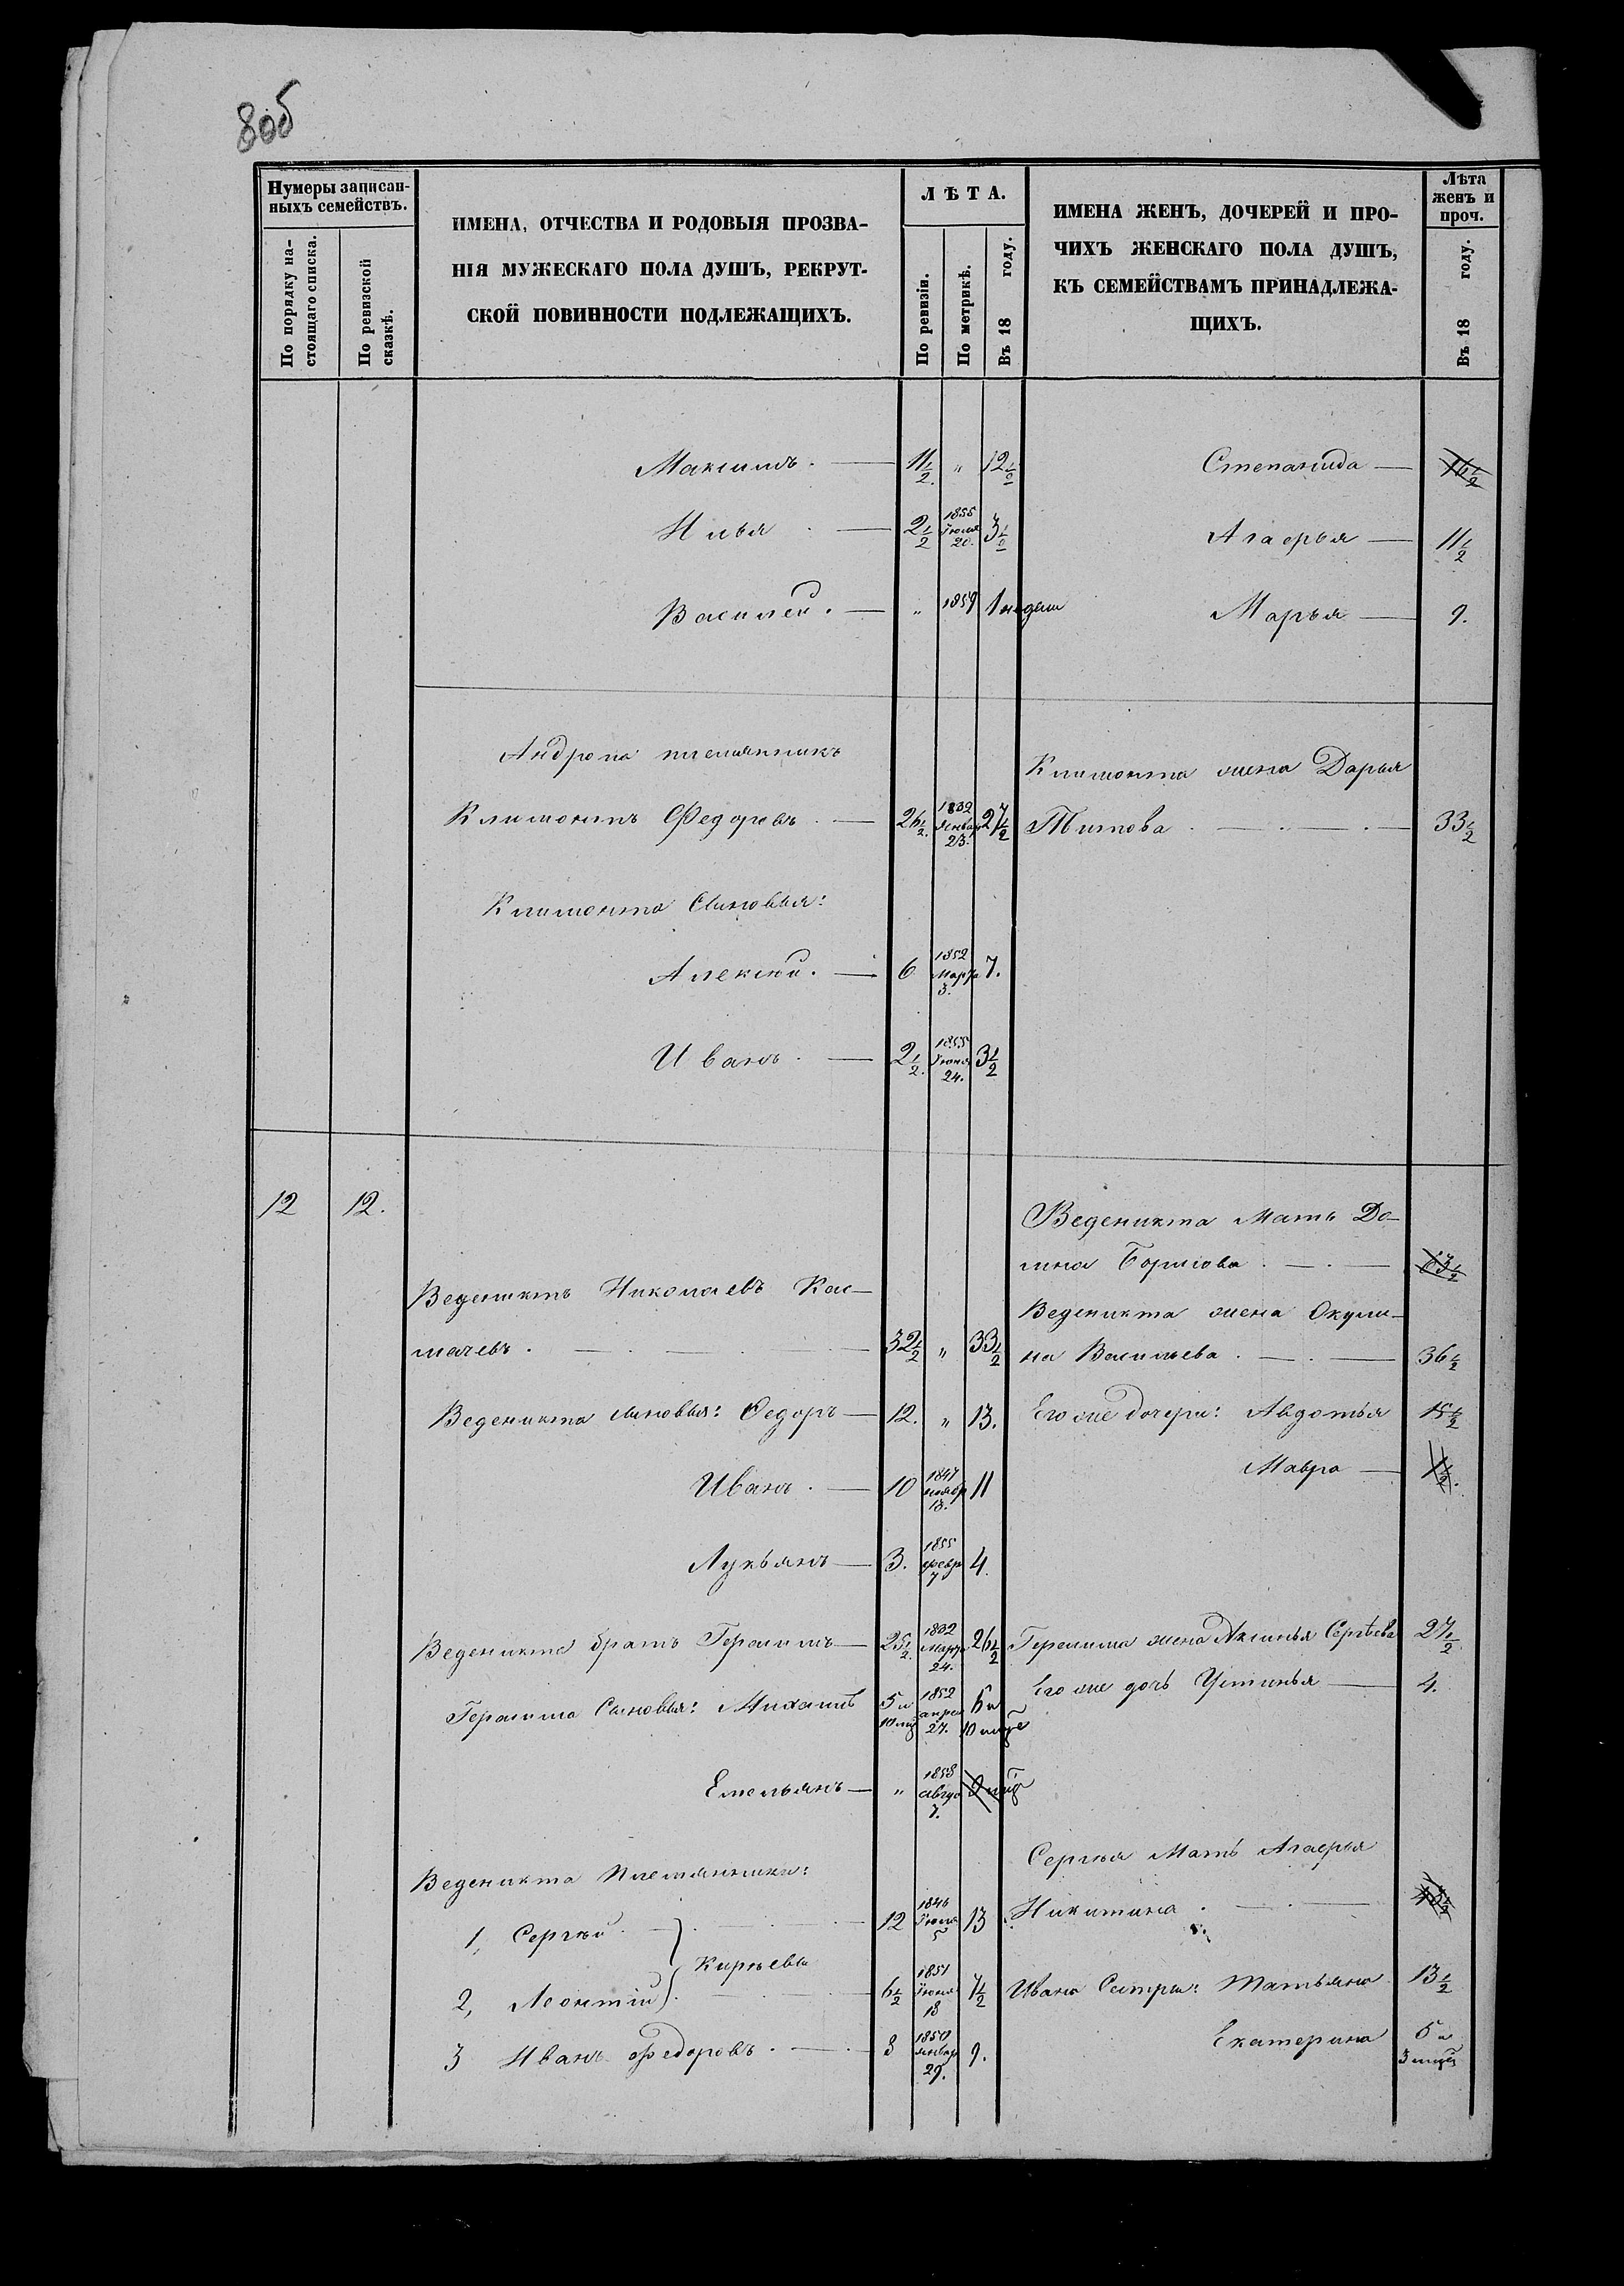 80б
Нумеры записан-
ныхъ семействъ.
По порядку на-
стоящаго списка.
По ревизской
сказкѣ.
ИМЕНА, ОТЧЕСТВА И РОДОВЫЯ ПРОЗВА-
НІЯ МУЖЕСКАГО ПОЛА ДУШЪ, РЕКРУТ-
СКОЙ ПОВИННОСТИ ПОДЛЕЖАЩИХЪ.
ЛѢТА.
По ревизіи.
По метрикѣ.
Въ 18 году.
ИМЕНА ЖЕНЪ, ДОЧЕРЕЙ И ПРО-
ЧИХЪ ЖЕНСКАГО ПОЛА ДУШЪ,
КЪ СЕМЕЙСТВАМЪ ПРИНАДЛЕЖА-
ЩИХЪ.
Лѣта
женъ и
проч.
Въ 18 году.
Максимъ. — 11½ „ 12½ Степанида —
Илья — 2½ 1855 Іюля 20. 3½ Агафья — 11½
Василей. — „ 1859 1 недели Марья — 9.
Андрона племянникъ
Климонта жена Дарья
Климонтъ Федоровъ. — 26½. 1832 Январ 23. 27½ Титова. — 33½
Климонта Сыновья:
Алексѣй. — 6 1852 Март 3. 7.
Иванъ. — 2½. 1855 Іюня 24. 3½
12 12.
Веденикта Мать До-
мна Борисова. — 63½
Ведениктъ Николаевъ Кос-
Веденикта жена Окули-
мачевъ. — 32½ „ 33½ на Васильева. — 36½
Веденикта сыновья: Федоръ — 12. „ 13. Его же дочери: Авдотья 15½
Мавра — 1½.
Иванъ. — 10 1847 ноябр 13. 11
Лукьянъ — 3. 1855 февр 7 4.
Веденикта братъ Герасимъ — 25½. 1832 Март 24. 26½ Герасима жена Аксинья Сергѣева 27½
Герасима Сыновья: Михаилъ 5 и 10 мц 1852 апрел 27. 6 и 10 мцѣ Его же дочь Устинья — 4.
Емельянъ — „ 1858 авгус 7.
Сергѣя Мать Агафья
Веденикта Племянники:
1, Сергѣй 12 1846 Іюля 5 13 Никитина. —
Кирѣевы
2, Леонтій 6½ 1851 Іюня 18 7½ Ивана Сестры: Татьяна 13½
3 Иванъ Федоровъ. — 8 1850 январ 29. 9. Екатерина 5 и 3 мцъ